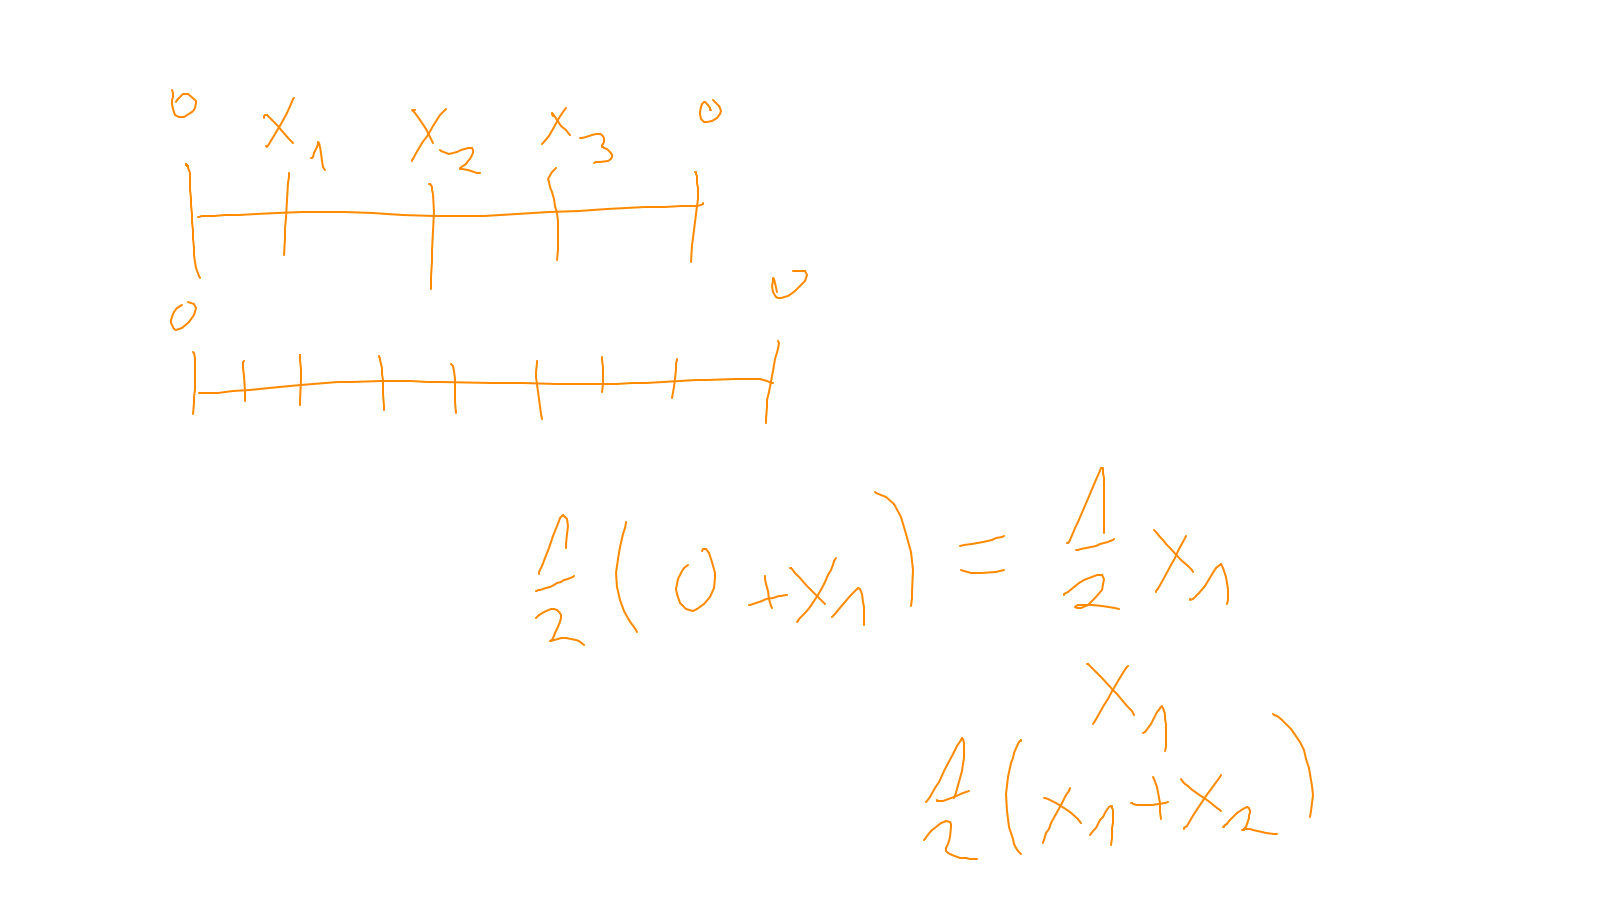 0 x₁ x₂ x₃ 0
0 0
1/2 (0 + x₁) = 1/2 x₁
x₁
1/2 (x₁ + x₂)